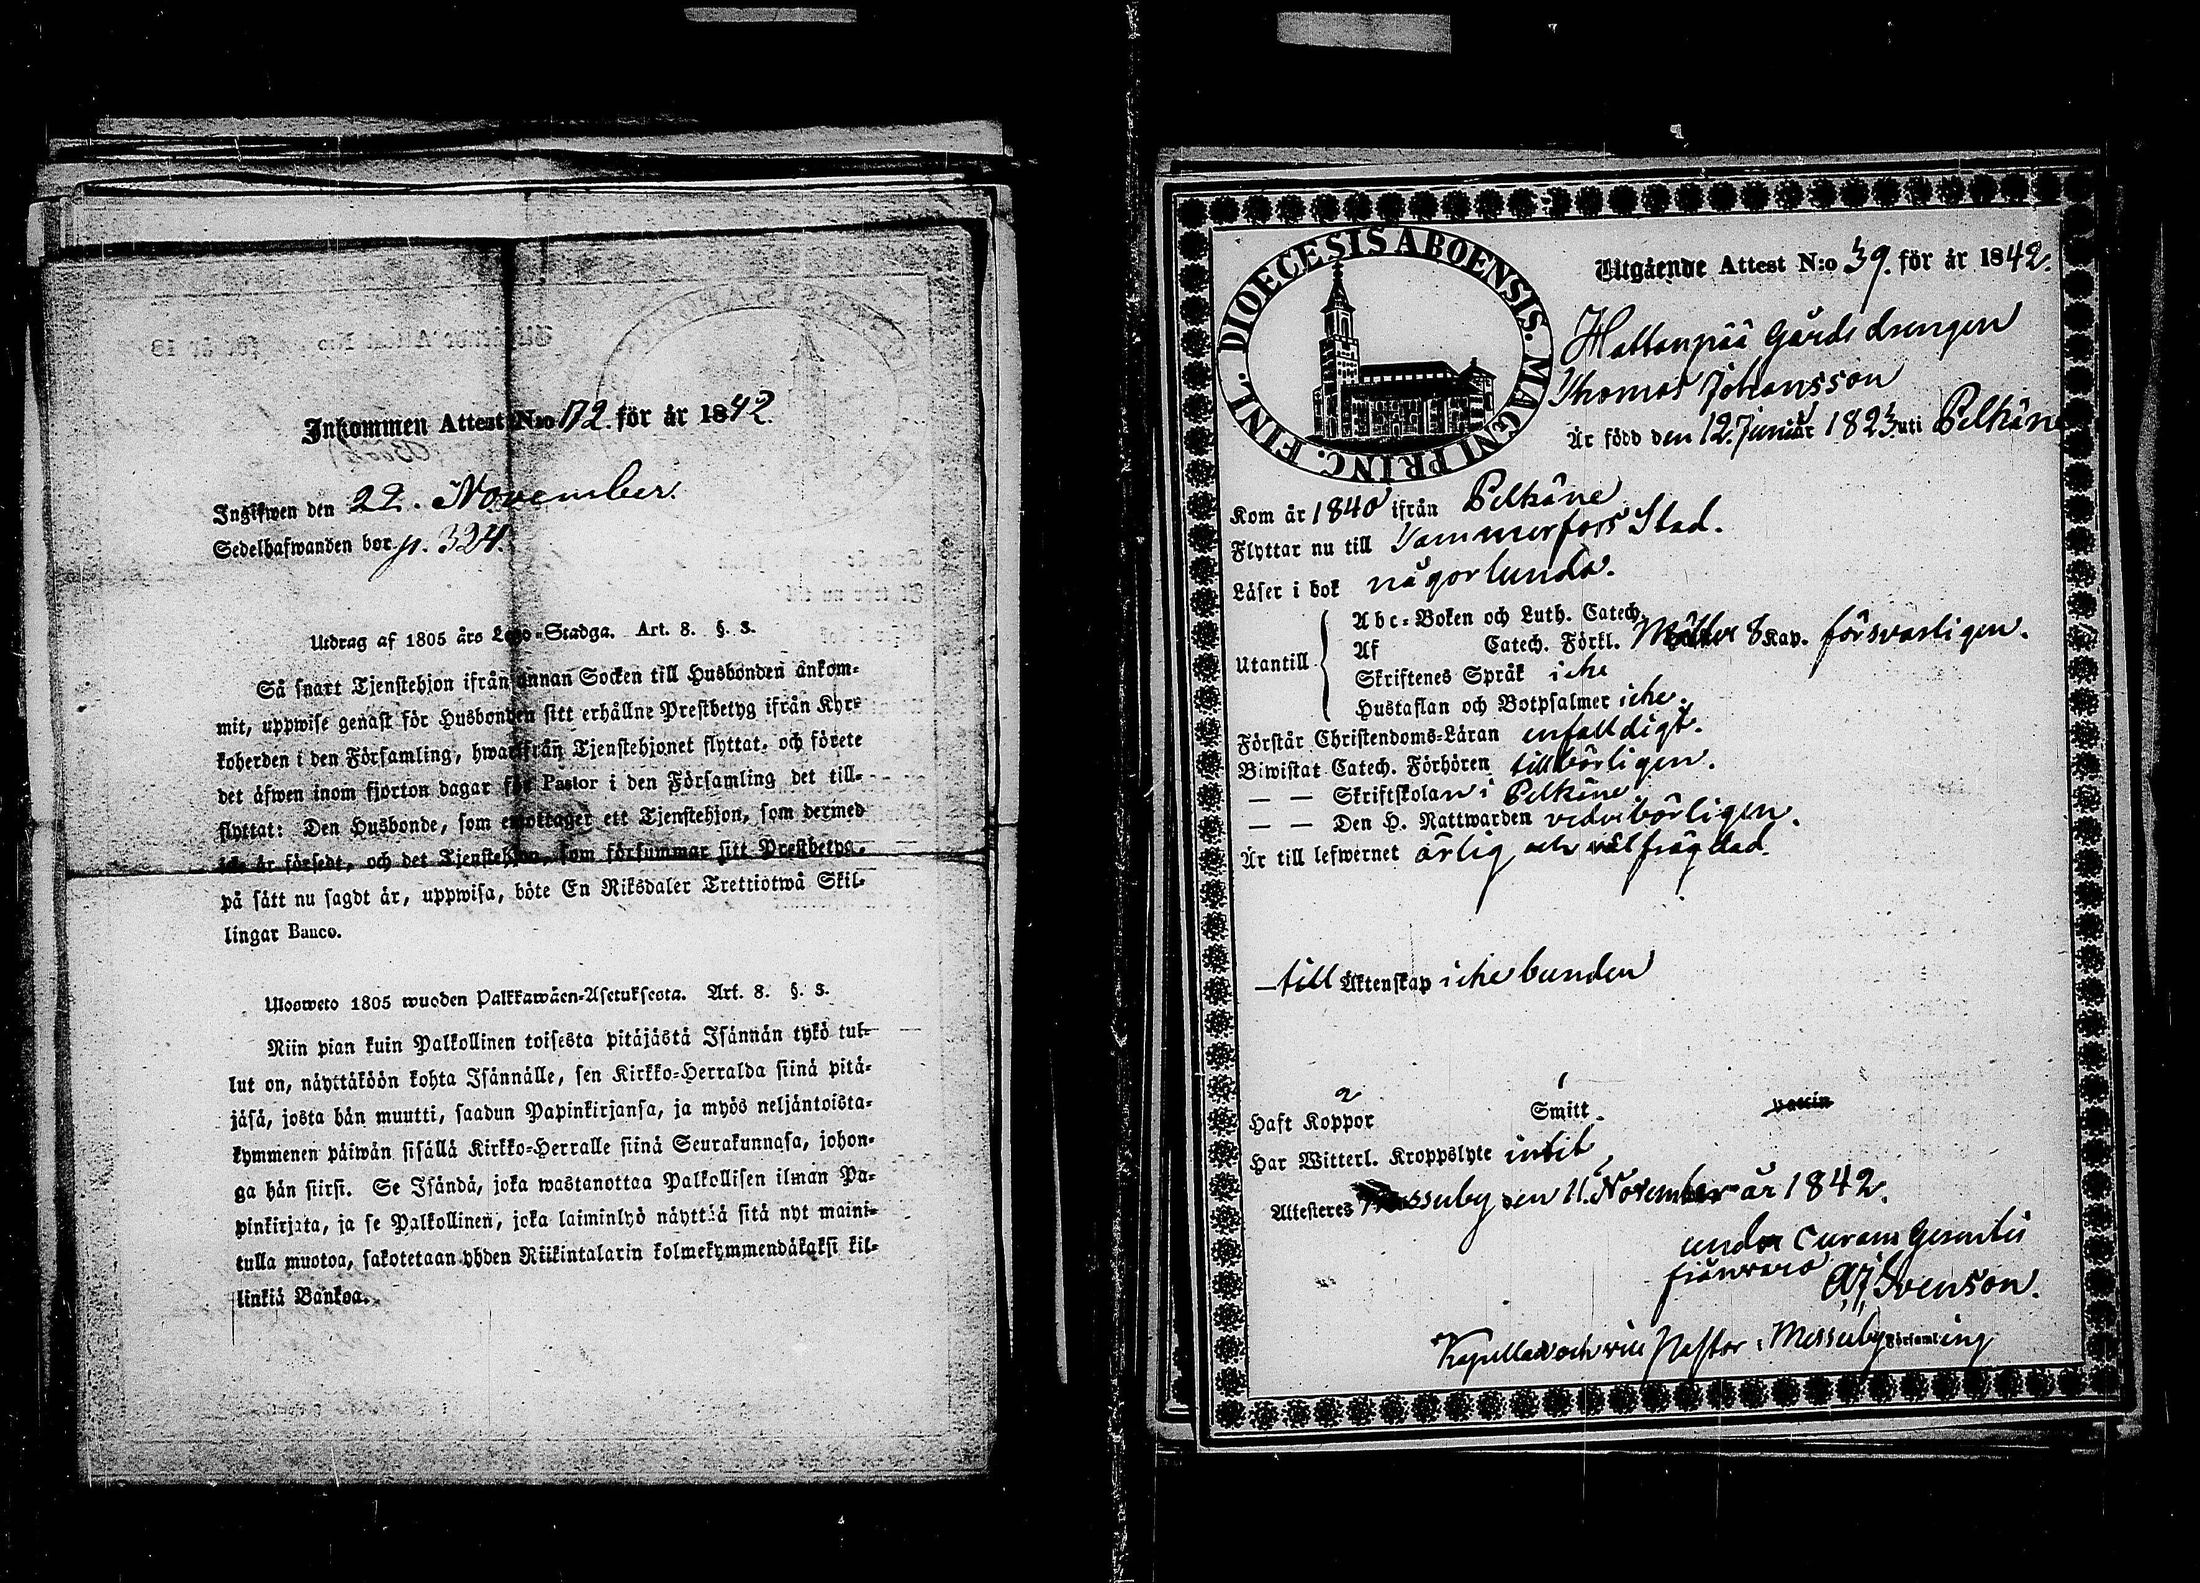 Inkommen Attest N:o 172 för år 1842
Ingifwen den 22. November.
Sedelhafwanden bor p. 324.
Utdrag af 1805 års Lego-Stadga. Art. 8. §. 3.
Så snart Tjenstehjon ifrån annan Socken till Husbonden ankom-
mit, uppwise genast för Husbonden sitt erhållne Prestbetyg ifrån Kyr-
koherden i den Församling, hwarifrån Tjenstehjonet flyttat, och förete
det äfwen inom fjorton dagar för Pastor i den Församling det till-
flyttat: Den Husbonde, som emottager ett Tjenstehjon, som dermed
ick är försedt, och det Tjenstehjon, som försummar sitt Prestbetyg,
på sätt nu sagdt är, uppwisa, böte En Riksdaler Trettiotwå Skil-
lingar Banco.
Ulosweto 1805 wuoden Palkkawäen-Asetuksesta. Art. 8. §. 3.
Niin pian kuin Palkollinen toisesta pitäjästä Isännän tykö tul-
lut on, näyttäköön kohta Isännälle, sen Kirkko-Herralda siinä pitä-
jäsä, josta hän muutti, saadun Papinkirjansa, ja myös neljäntoista-
kymmenen päiwän sisällä Kirkko-Herralle siinä Seurakunnasa, johon-
ga hän siirsi. Se Isändä, joka wastanottaa Palkollisen ilman Pa-
pinkirjata, ja se Palkollinen, joka laiminlyö näyttää sitä nyt maini-
tulla muotoa, sakotetaan yhden Riikintalarin kolmekymmendäkaksi kil-
linkiä Bankoa.
DIOECESIS ABOENSIS. MAGNI PRINC. FINL.
Utgående Attest N:o 39. för år 1842.
Hattanpää Gårds drengen
Thomas Johansson
Är född den 12. Juni år 1823 uti Pelkäne
Kom år 1840 ifrån Pelkäne
Flyttar nu till Tammerfors Stad.
Läser i bok någorlunda.
Utantill
Abc-Boken och Luth. Catech.
Af Catech. Förkl. 8 Kap. försvarligen.
Skriftenes Språk icke
Hustaflan och Botpsalmer icke.
Förstår Christendoms-Läran enfaldigt.
Biwistat Catech. Förhören tillbörligen.
— — Skriftskolan i Pelkäne
— — Den H. Nattwarden vederbörligen.
Är till lefwernet ärlig och välfrägdad.
— till Äktenskap icke bunden
Haft Koppor Smitt vaccin
Har Witterl. Kroppslyte intet
Attesteres Messuby den 11. November år 1842.
under Curam Gerentis
frånvaro AJ Svenson.
Kapellan och vice Pastor i Messuby Församling